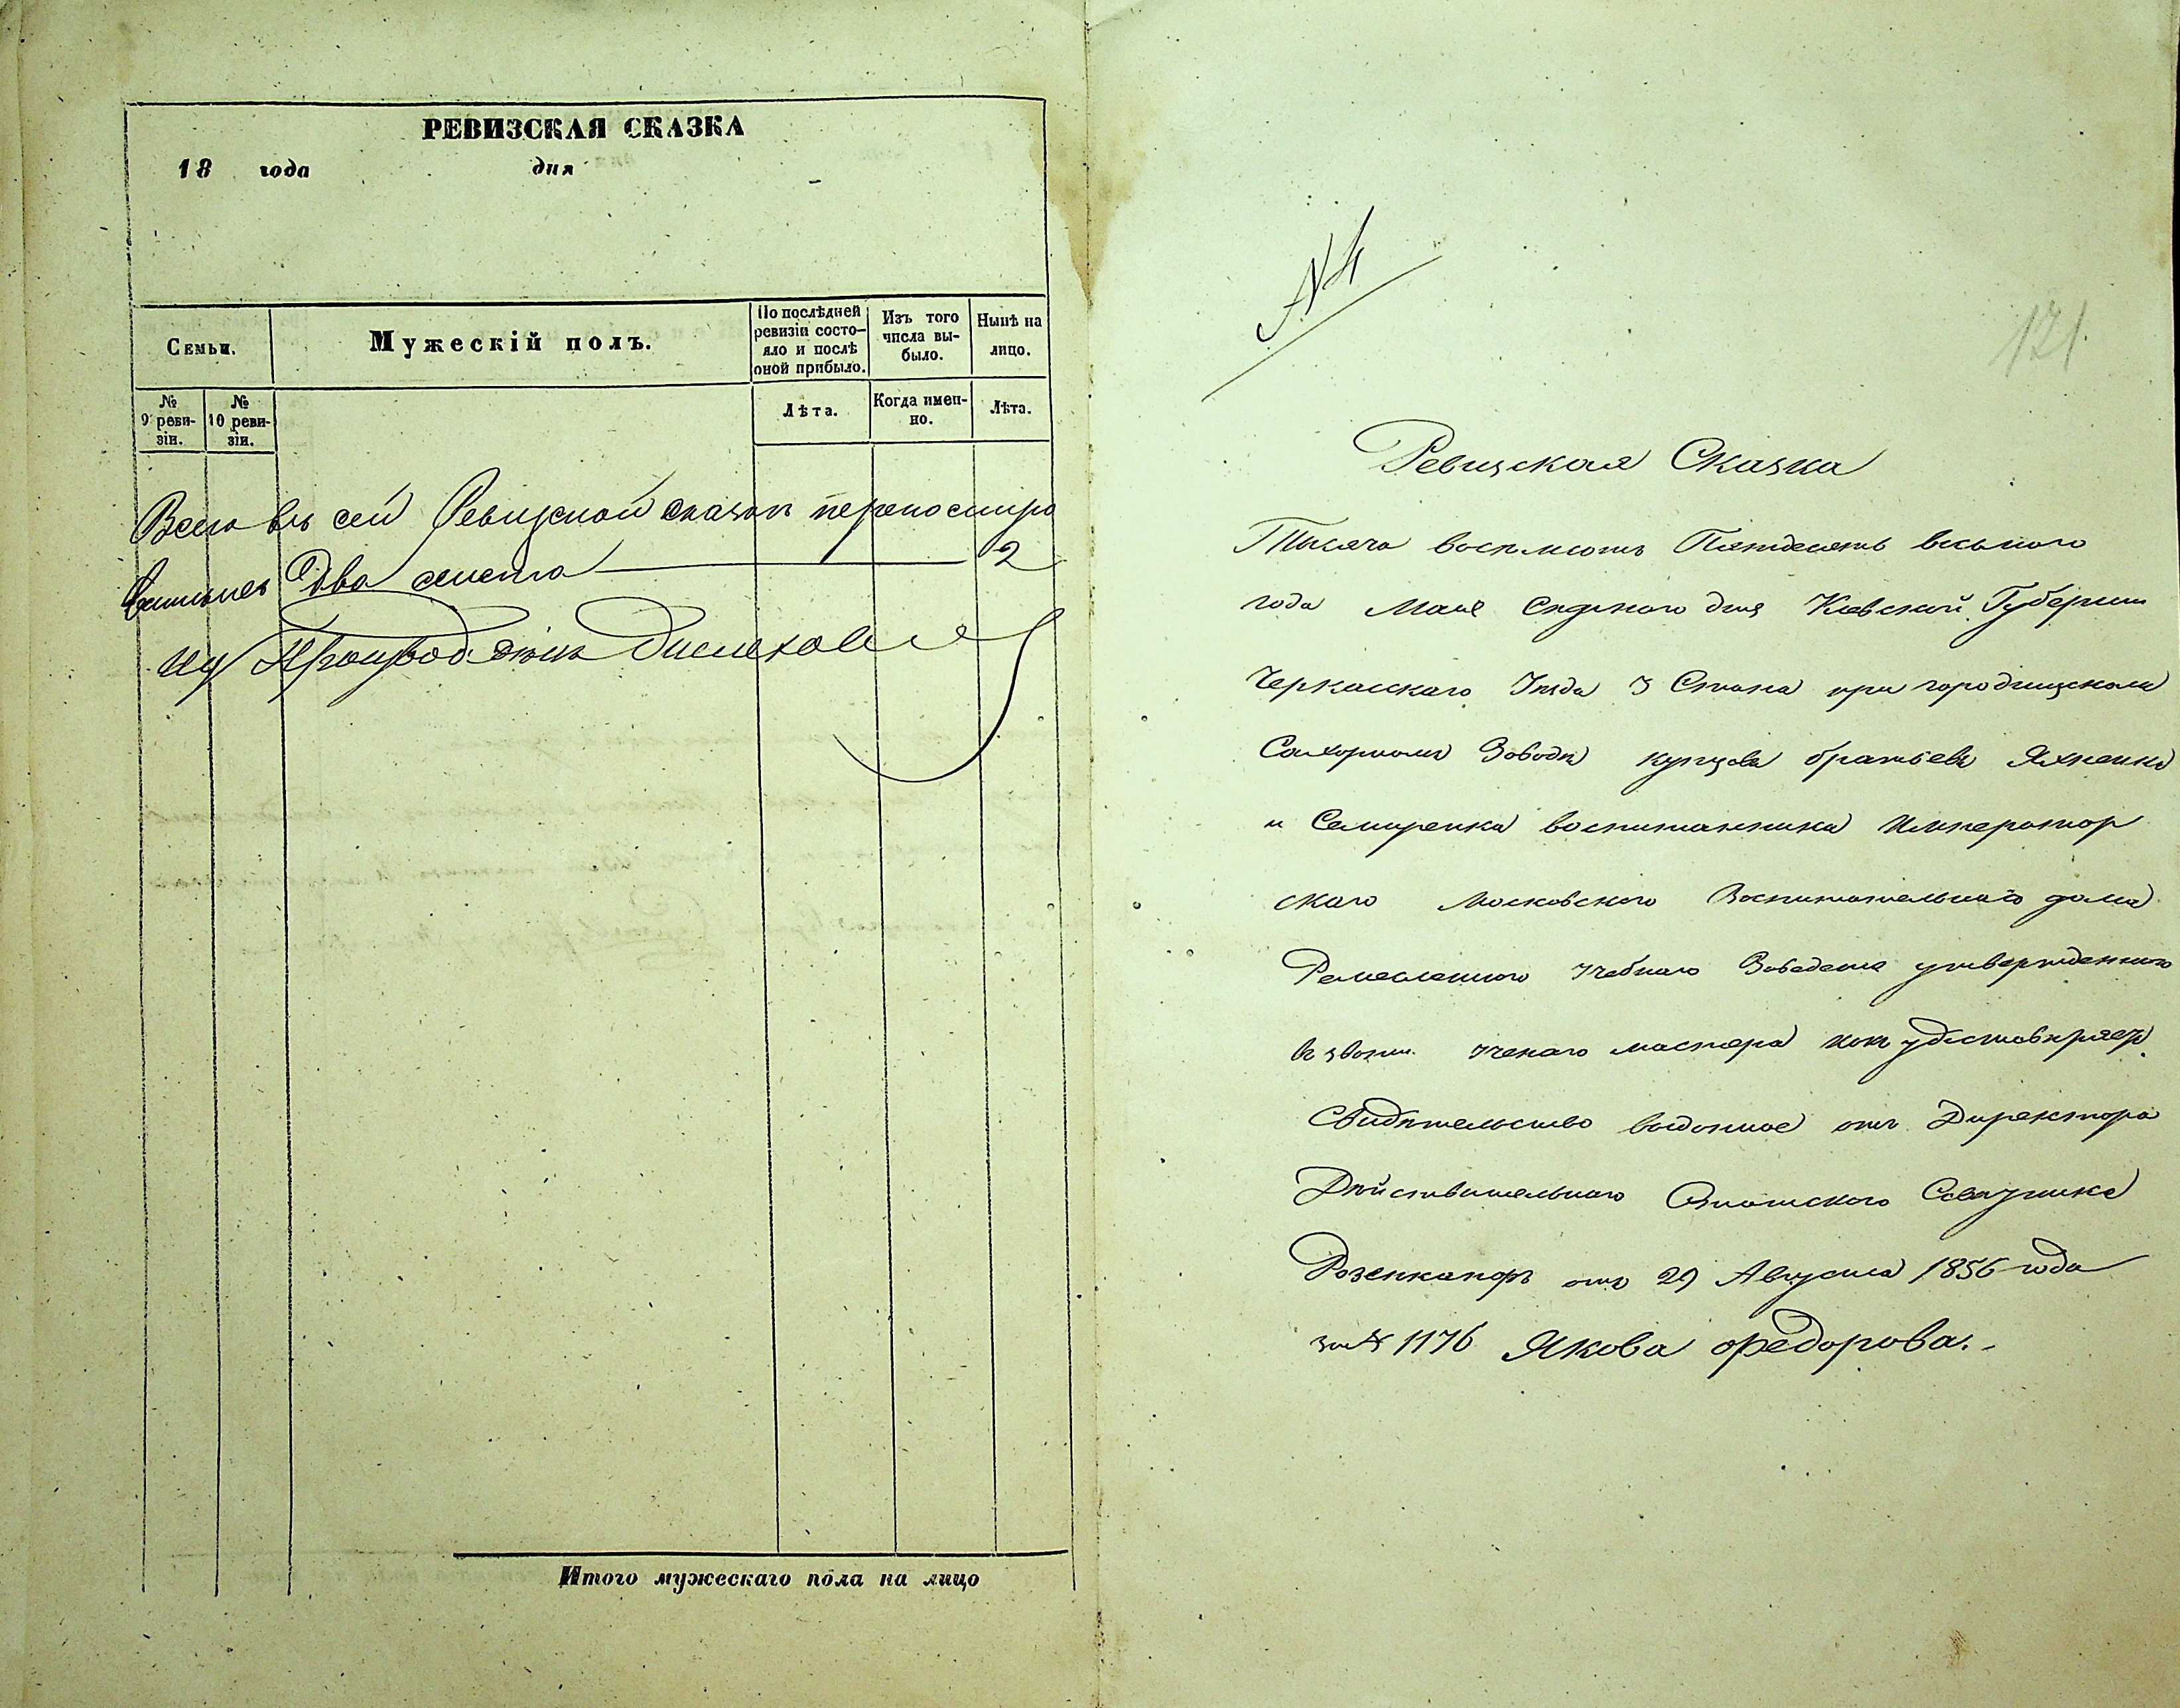 РЕВИЗСКАЯ СКАЗКА
18 года дня
Семьи.
Мужескій полъ.
По послѣдней ревизіи состо-
яло и послѣ оной прибыло.
Изъ того числа вы-
было.
Нынѣ на лицо.
№ 9 реви-
зіи.
№ 10 реви-
зіи.
Лѣта.
Когда имен-
но.
Лѣта.
Всего въ сей Ревизской сказкѣ
Два 2
Итого мужескаго пола на лицо
№ 4
121
Ревизская Сказка
Тысяча восемьсотъ Пятдесятъ восьмого
года Мая Седмого дня Кіевской Губерніи
Черкасскаго Уѣзда 3 Стана при городищскомъ
Сахарномъ Заводѣ купцовъ братьевъ Яхненка
и Семиренка воспитанника Император
скаго Московского Воспитательнаго дома
Ремесленного Учебнаго Заведенія утвержденного
въ званіи ученаго мастера какъ удостовѣряетъ
Свидѣтельство выданное отъ Директора
Дѣйствительнаго Статского Совѣтника
Розенкампфъ отъ 29 Августа 1856 года
за № 1176 Якова Федорова.